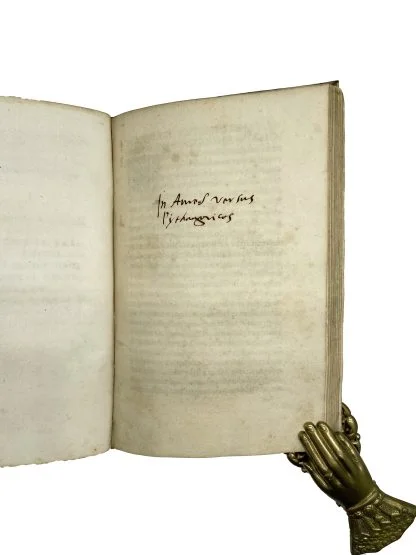 In Aureos versus
Pythagoricos